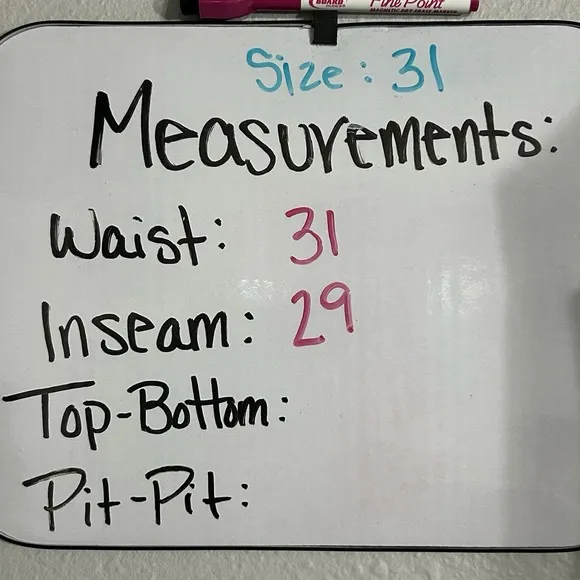 BOARD
Fine Point
MAGNETIC DRY ERASE MARKER
Size: 31
Measurements:
Waist: 31
Inseam: 29
Top-Bottom:
Pit-Pit: